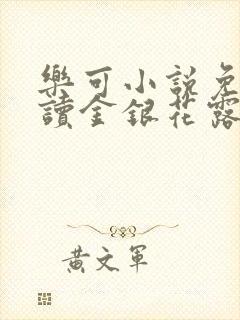 樂可小說免
讀金銀花露
黃文軍